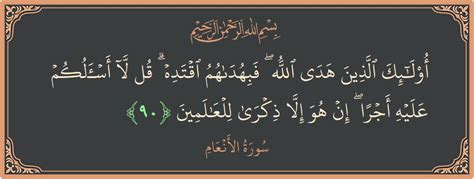 بِسْمِ اللَّهِ الرَّحْمَٰنِ الرَّحِيمِ
أُوْلَٰٓئِكَ ٱلَّذِينَ هَدَى ٱللَّهُ ۖ فَبِهُدَىٰهُمُ ٱقْتَدِهْ ۗ قُل لَّآ أَسْـَٔلُكُمْ
عَلَيْهِ أَجْرًا ۖ إِنْ هُوَ إِلَّا ذِكْرَىٰ لِلْعَٰلَمِينَ ﴿٩٠﴾
سُورَةُ الأَنْعَامِ